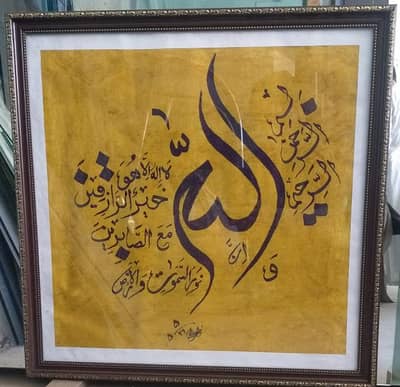 بسم
الله الرحمن
الرحيم
الله
و
ان
لا اله الا هو
خير الرازقين
مع الصابرين
نور السموات والارض